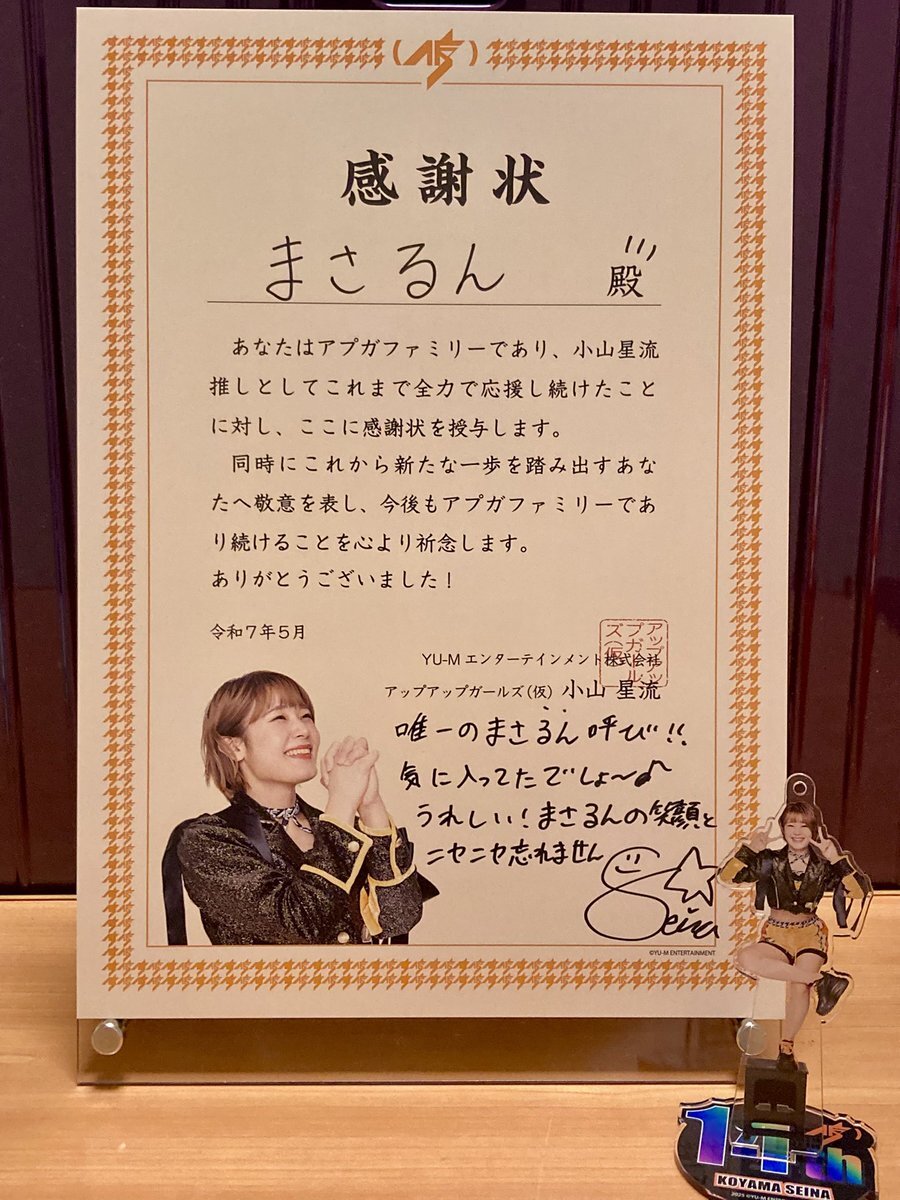 感謝状
まさるん 殿
あなたはアプガファミリーであり、小山星流
推しとしてこれまで全力で応援し続けたこと
に対し、ここに感謝状を授与します。
同時にこれから新たな一歩を踏み出すあな
たへ敬意を表し、今後もアプガファミリーであ
り続けることを心より祈念します。
ありがとうございました!
令和7年5月
YU-Mエンターテインメント株式会社
アップアップガールズ(仮) 小山 星流
アップアップガールズ(仮)
唯一のまさるん呼び!!
気に入ってたでしょ〜♪
うれしい!まさるんの笑顔と
ニヤニヤ忘れません
Seina
©YU-M ENTERTAINMENT
14th
KOYAMA SEINA